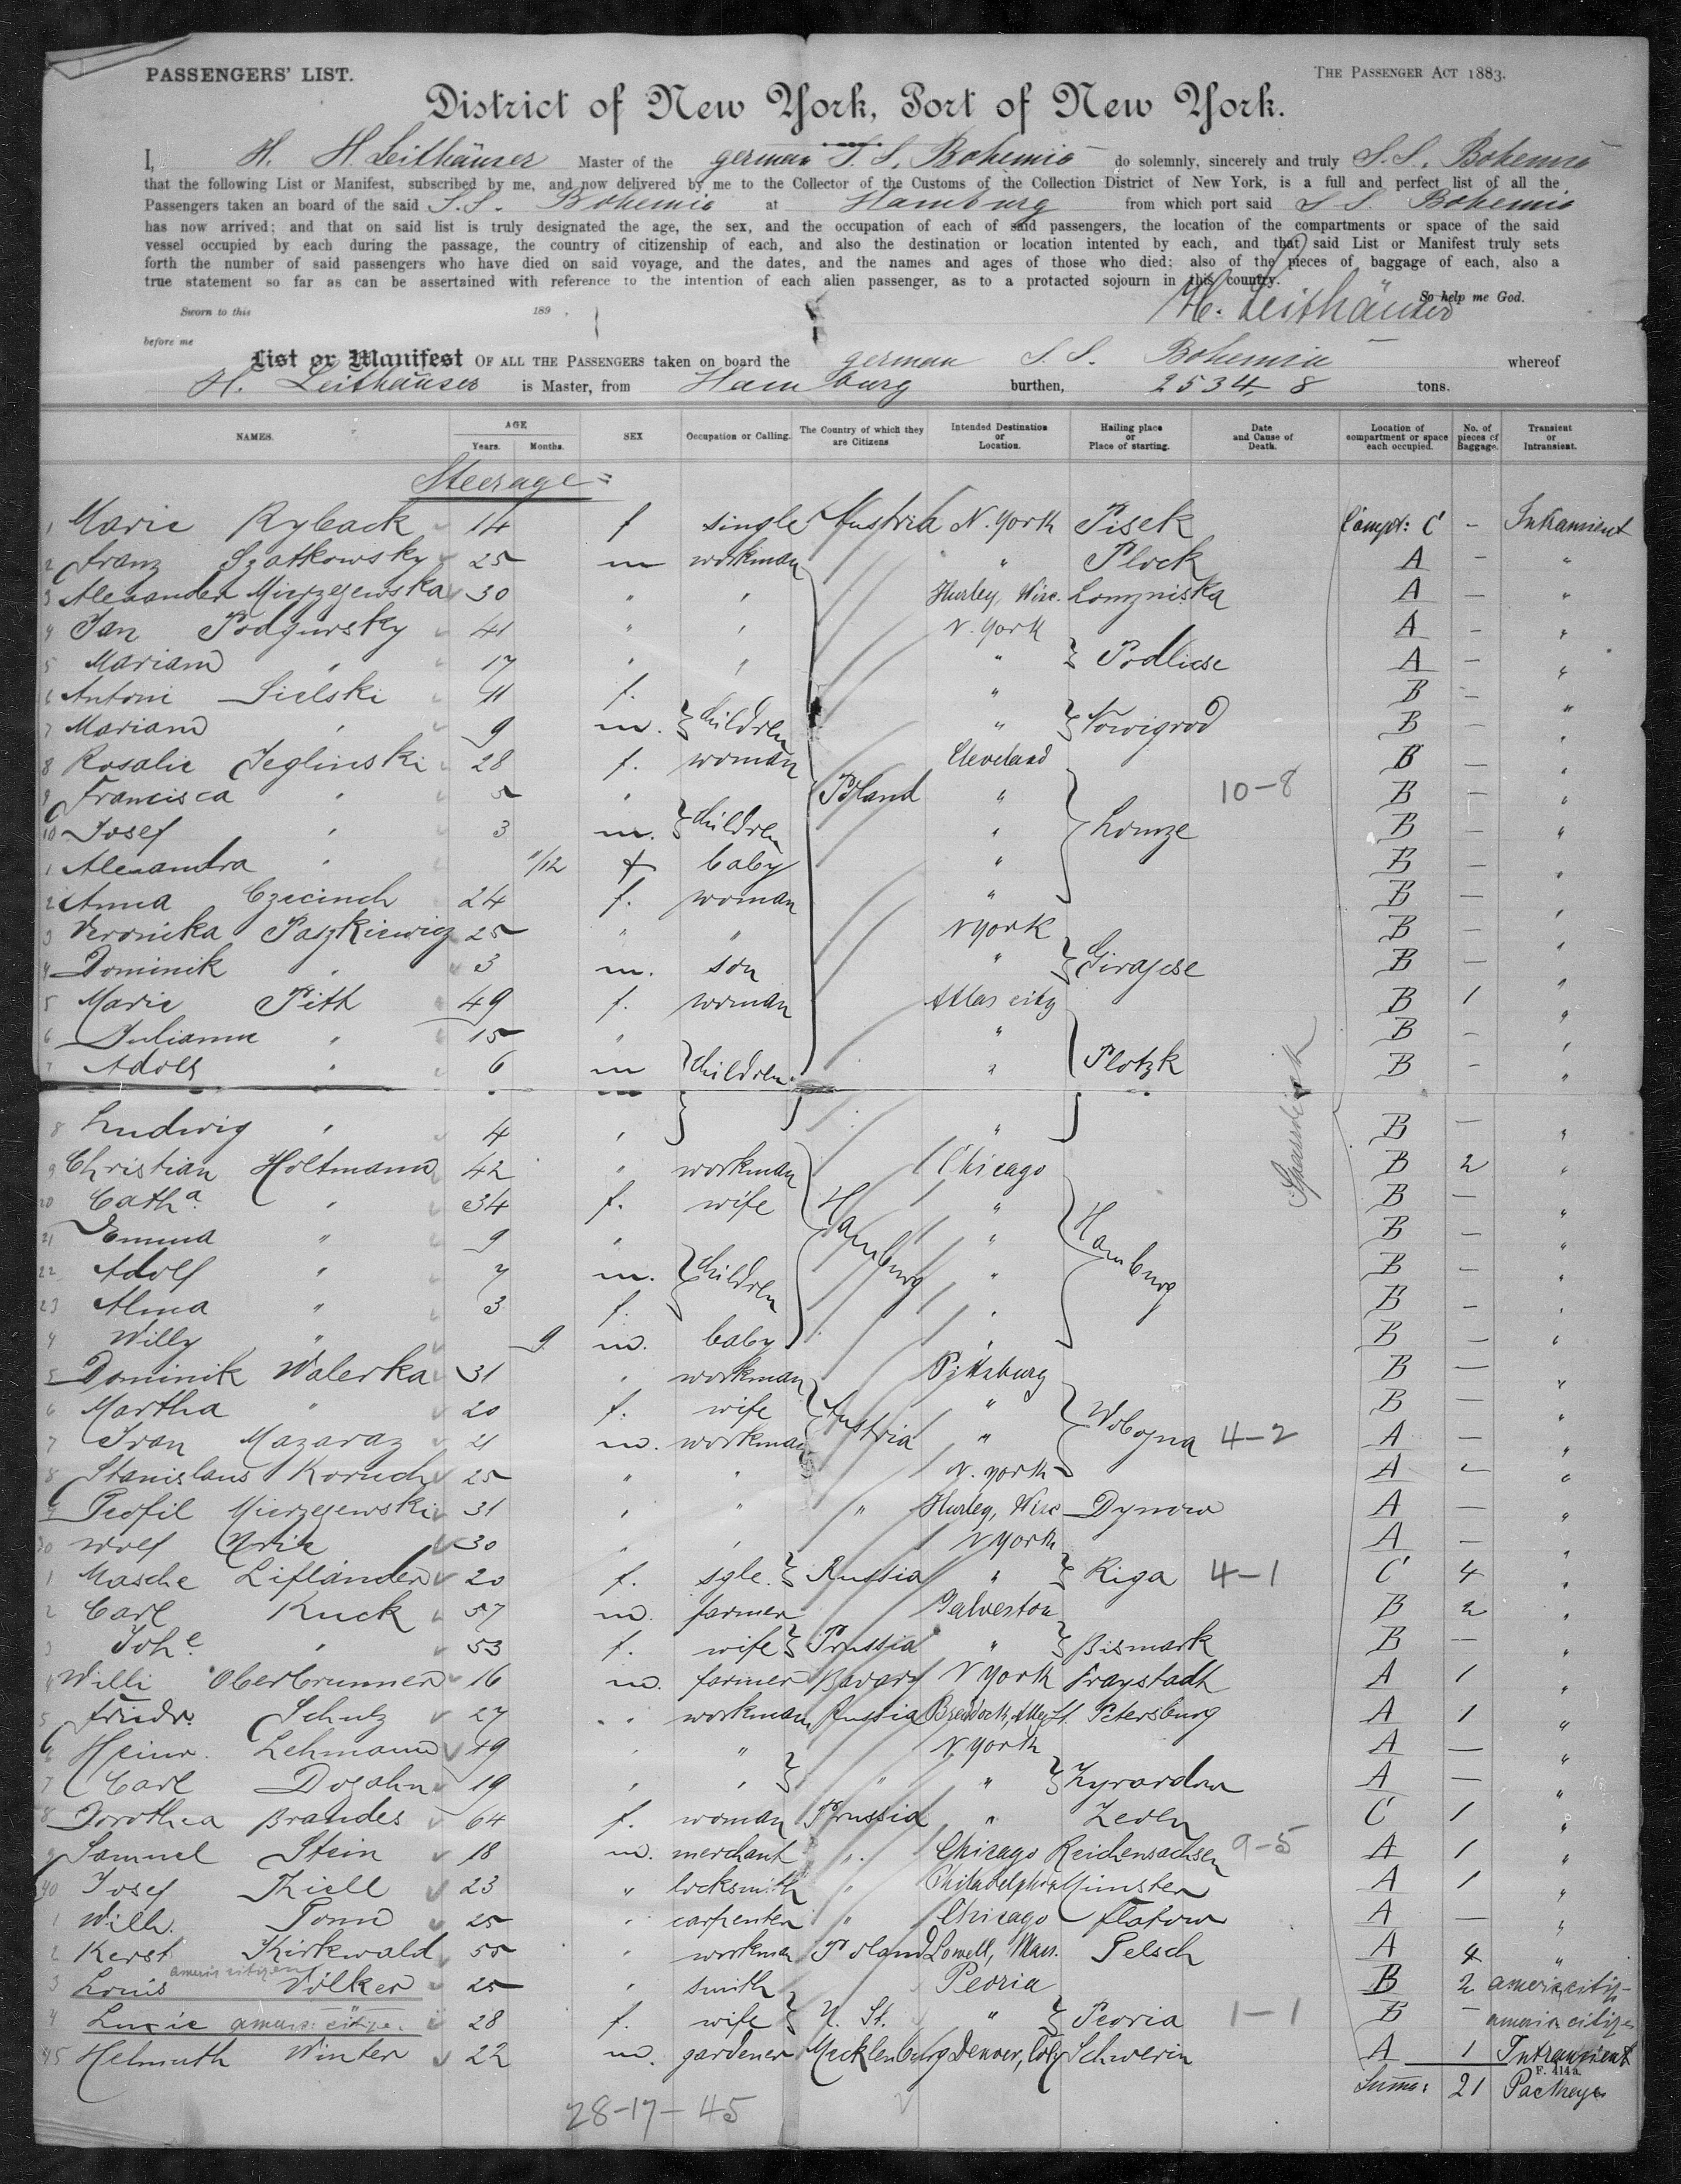 PASSENGERS' LIST.
THE PASSENGER ACT 1883.
District of New York, Port of New York.
I, H. H. Leithäuser Master of the german S. S. Bohemia do solemnly, sincerely and truly S. S. Bohemia
that the following List or Manifest, subscribed by me, and now delivered by me to the Collector of the Customs of the Collection District of New York, is a full and perfect list of all the
Passengers taken an board of the said S. S. Bohemia at Hamburg from which port said S S Bohemia
has now arrived; and that on said list is truly designated the age, the sex, and the occupation of each of said passengers, the location of the compartments or space of the said
vessel occupied by each during the passage, the country of citizenship of each, and also the destination or location intented by each, and that said List or Manifest truly sets
forth the number of said passengers who have died on said voyage, and the dates, and the names and ages of those who died; also of the pieces of baggage of each, also a
true statement so far as can be ascertained with reference to the intention of each alien passenger, as to a protacted sojourn in this country.
So help me God.
H. Leithäuser
Sworn to this 189 .
before me
List or Manifest OF ALL THE PASSENGERS taken on board the german S. S. Bohemia whereof
H. Leithäuser is Master, from Hamburg burthen, 2534,8 tons.
NAMES. AGE Years. Months. SEX Occupation or Calling. The Country of which they are Citizens Intended Destination or Location. Hailing place or Place of starting. Date and Cause of Death. Location of compartment or space each occupied. No. of pieces of Baggage. Transient or Intransient.
Steerage =
1 Marie Ryback 14 f single Austria N. York Pisek Compt: C – Intransient
2 Franz Szatkowsky 25 m workman " Plock A – "
3 Alexander Mierzejewska 30 " " Hurley, Wisc. Lomzniska A – "
4 Jan Podgursky 41 " " N. York A – "
5 Mariam " 17 " " " } Podliese A – "
6 Antoni Sielski 11 f. " B – "
7 Mariam " 9 m. } children " } Nowigrod B – "
8 Rosalie Jeglinski 28 f. woman Cleveland B – "
9 Francisca " 5 " Poland " 10-8 B – "
10 Josef " 3 m. } children " } Lomze B – "
1 Alexandra " 11/12 f baby " B – "
2 Anna Czecinch 24 f. woman " B – "
3 Veronika Paszkiewicz 25 " " N York B – "
4 Dominik " 3 m. son " } Girajese B – "
5 Marie Pith 49 f. woman Atlas city B 1 "
6 Julianne " 15 " " B – "
7 Adolf " 6 m } children " Plotzk B – "
8 Ludwig " 4 " " B – "
9 Christian Holtmann 42 " workman Chicago B 2 "
20 Catha " 34 f. wife Hamburg " Hamburg B – "
21 Emma " 9 " " B – "
22 Adolf " 7 m. } children " B – "
23 Alma " 3 f. " B – "
4 Willy " 9 m. baby " B – "
5 Dominik Walerka 31 " workman Pittsburg B – "
6 Martha " 20 f. wife Austria " B – "
7 Ivan Mazaraz 21 m. workman " Wobogna 4-2 A – "
8 Stanislaus Koruch 25 " " N. York A – "
9 Teofil Mierzejewski 31 " " " Hurley, Wisc Dynow A – "
30 Wolf 30 " " N York A – "
1 Masche Lifländer 20 f. sgle. } Russia " } Riga 4-1 C 4 "
2 Carl Kuck 57 m. farmer Galveston B 2 "
3 Johe " 53 f. wife } Prussia " } Bismark B – "
4 Willi Oberbrunner 16 m. farmer Bavar N York Fraystadt A 1 "
5 Friedr. Schulz 27 " workman Russia Braddock, St. Petersburg A 1 "
6 Heinr. Lehmann 49 " " N York A – "
7 Carl Dojahn 19 " " } " " } Zyrardow A – "
8 Dorothea Brandes 64 f. woman Prussia " Zeven C 1 "
9 Samuel Stein 18 m. merchant " Chicago Reichensachsen 9-5 A 1 "
40 Josef Thiell 23 " locksmith " Philadelphia Münster A 1 "
1 Wilh. Tonn 25 " carpenter " Chicago Flatow A – "
2 Kerst Kirkwald 55 " workman Poland Lowell, Mass. Pelsch A 4 "
americ citizen
3 Louis Völker 25 " smith Peoria B 2 americ. citiz-
4 Lucie americ: citize. 28 f. wife } U. St. " } Peoria 1-1 B – americ citize
45 Helmuth Winter 22 m. gardener Mecklenburg Denver, Col Schwerin A 1 Intransient
F. 414a.
Summa: 21 Packages
28-17-45